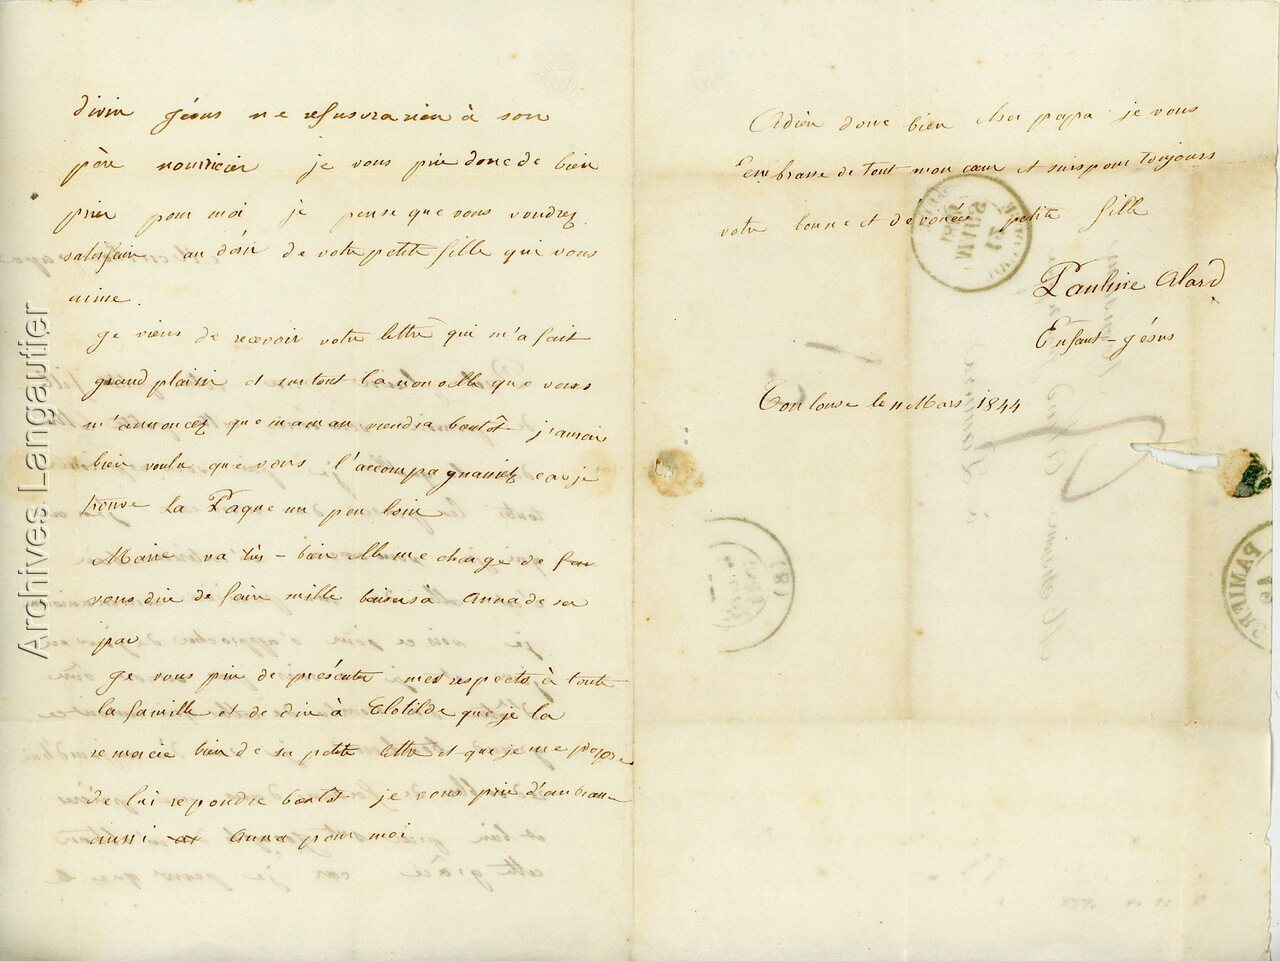 divin Jésus ne refusera rien à son
père nourricier je vous prie donc de bien
prier pour moi je pense que vous voudrez
satisfaire au désir de votre petite fille qui vous
aime.
Je viens de recevoir votre lettre qui m'a fait
grand plaisir et surtout la nouvelle que vous
m'annoncez que maman viendra bentôt j'aurai
bien voulu que vous l'accompagnassiez car je
trouve La Paque un peu loin
Marie va très-bien elle me charge de
vous dire de faire mille baisers à Anna de sa
par
Je vous prie de présenter mes respects à toute
la famille et de dire à Clotilde que je la
remercie bien de sa petite lettre et que je me propose
de lui repondre bentôt je vous prie d'ambrasser
aussi Anna pour moi
Adieu donc bien cher papa je vous
Embrasse de tout mon cœur et suis pour toujours
votre bonne et dévouée petite fille
Pauline Alard
Enfant-Jésus
Toulouse le 11 Mars 1844
PAMIERS
Archives Langautier